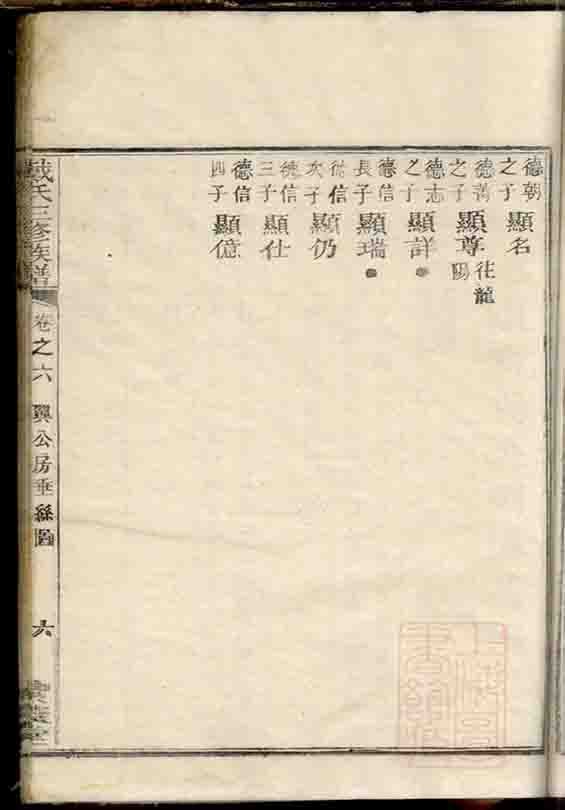 德朝之子 顯名
德菁之子 顯尊 往龍陽
德志之子 顯詳
德信長子 顯瑞
德信次子 顯仍
德信三子 顯仕
德信四子 顯億
戴氏三修族譜 卷之六 興公房垂絲圖 六
上海圖書館藏